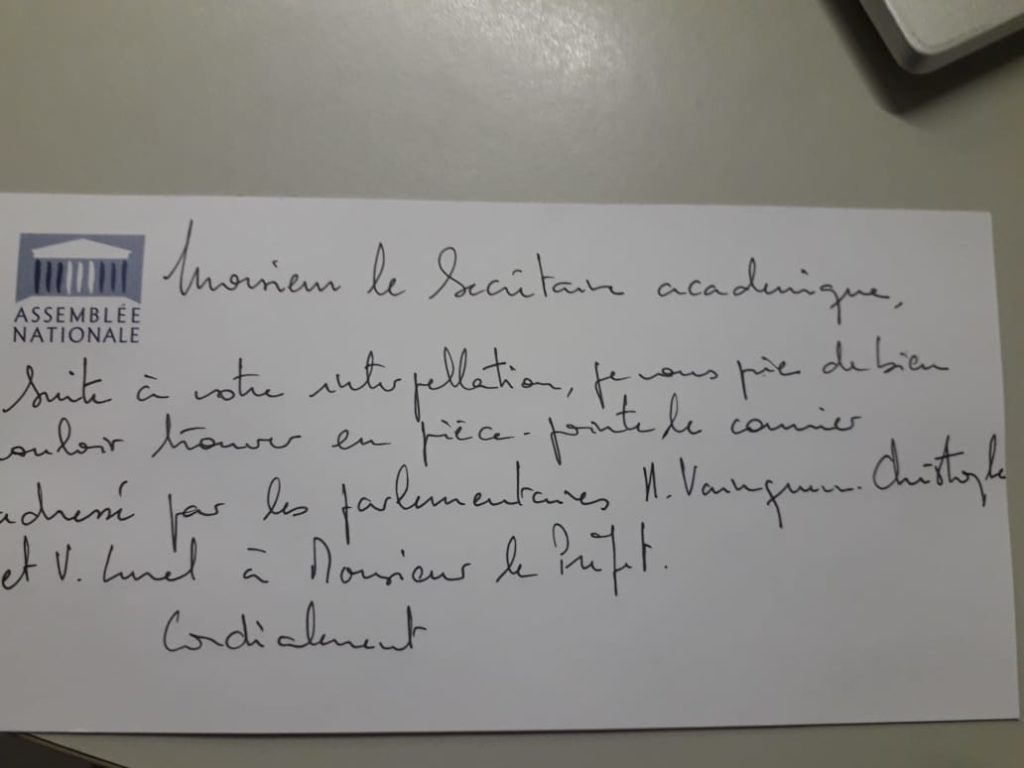 ASSEMBLÉE
NATIONALE
Monsieur le Secrétaire académique,
Suite à votre interpellation, je vous prie de bien
vouloir trouver en pièce-jointe le courrier
adressé par les parlementaires H. Vainqueur-Christophe
et V. Lurel à Monsieur le Préfet.
Cordialement